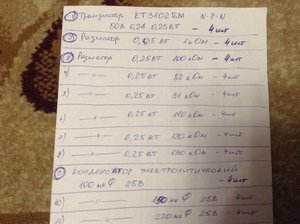 ① Транзистор КТ3102БМ N-P-N
50В 0,2А 0,25Вт - 4шт
② Резистор 0,25Вт 1кОм - 4шт
③ Резистор 0,25Вт 100кОм - 4шт
4) —"— 0,25Вт 82кОм - 4шт
5) —"— 0,25Вт 91кОм - 4шт
6) —"— 0,25Вт 110кОм - 4шт
7) —"— 0,25Вт 120кОм - 4шт
8) —"— 0,25Вт 130кОм - 4шт
⑨ Конденсатор электролитический
100мкФ 25В - 4шт
10) —"— мкФ 25В - 4шт
11) —"— 220мкФ 25В - 4шт